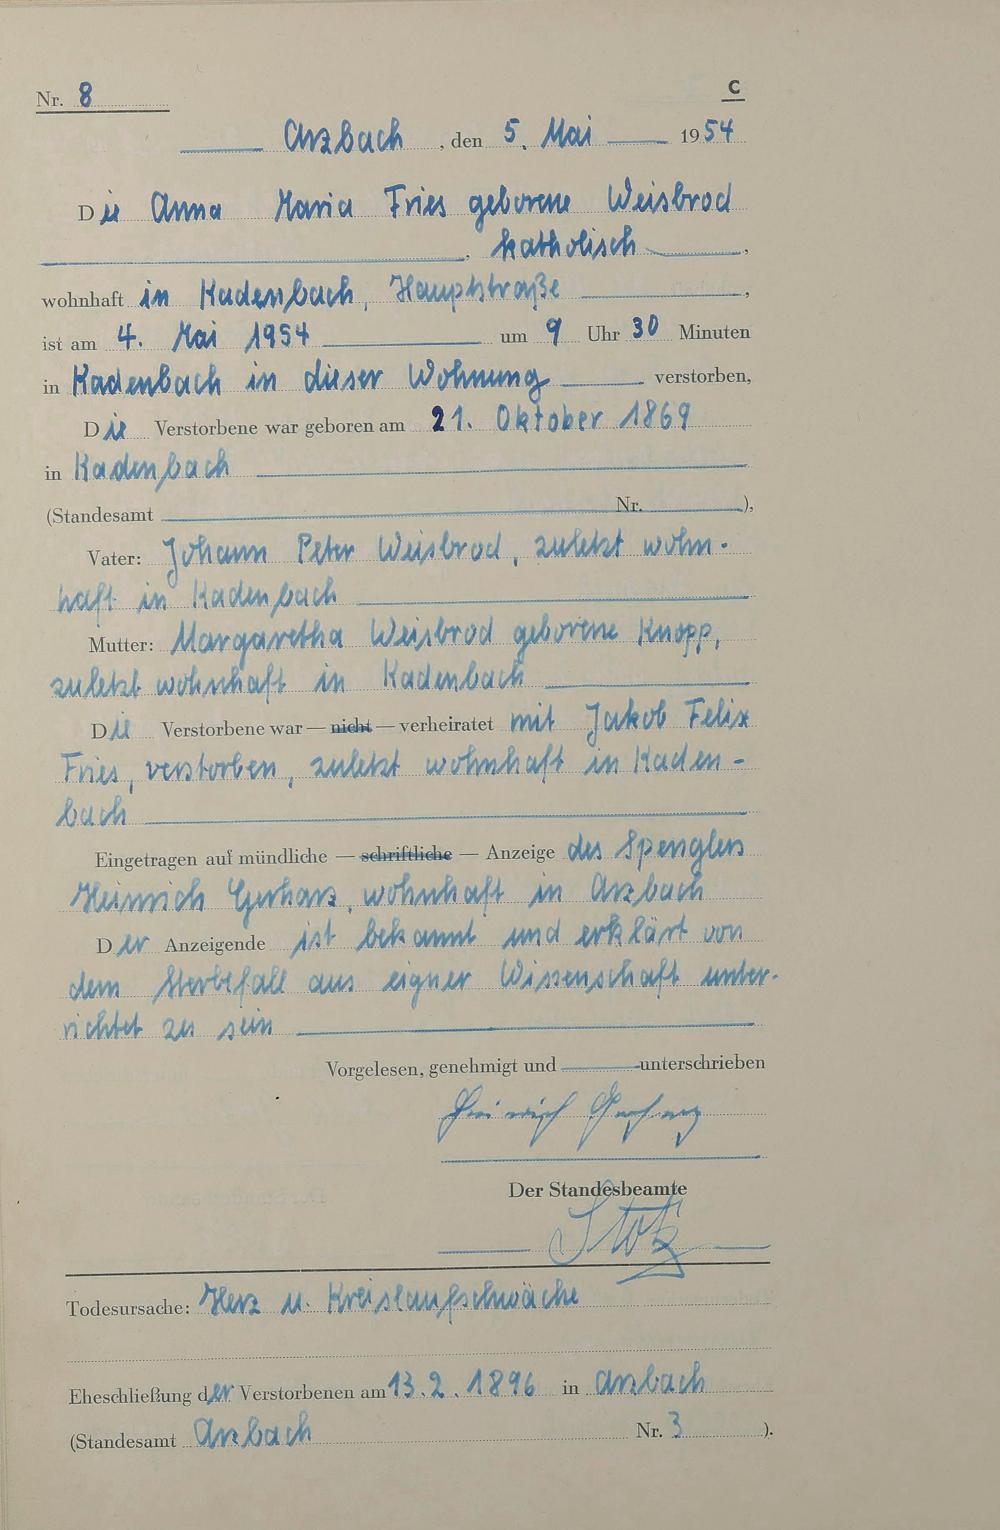 Nr. 8 C
Arzbach, den 5. Mai 1954
Die Anna Maria Fries geborene Weisbrod
, katholisch,
wohnhaft in Kadenbach, Hauptstraße,
ist am 4. Mai 1954 um 9 Uhr 30 Minuten
in Kadenbach in dieser Wohnung verstorben,
Die Verstorbene war geboren am 21. Oktober 1869
in Kadenbach
(Standesamt Nr. ),
Vater: Johann Peter Weisbrod, zuletzt wohn-
haft in Kadenbach
Mutter: Margaretha Weisbrod geborene Knopp,
zuletzt wohnhaft in Kadenbach
Die Verstorbene war — nicht — verheiratet mit Jakob Felix
Fries, verstorben, zuletzt wohnhaft in Kaden-
bach
Eingetragen auf mündliche — schriftliche — Anzeige des Spenglers
Heinrich Gerharz, wohnhaft in Arzbach
Der Anzeigende ist bekannt und erklärt von
dem Sterbefall aus eigner Wissenschaft unter-
richtet zu sein
Vorgelesen, genehmigt und unterschrieben
Heinrich Gerharz
Der Standesbeamte
Stotz
Todesursache: Herz u. Kreislaufschwäche
Eheschließung der Verstorbenen am 13.2.1896 in Arzbach
(Standesamt Arzbach Nr. 3 ).